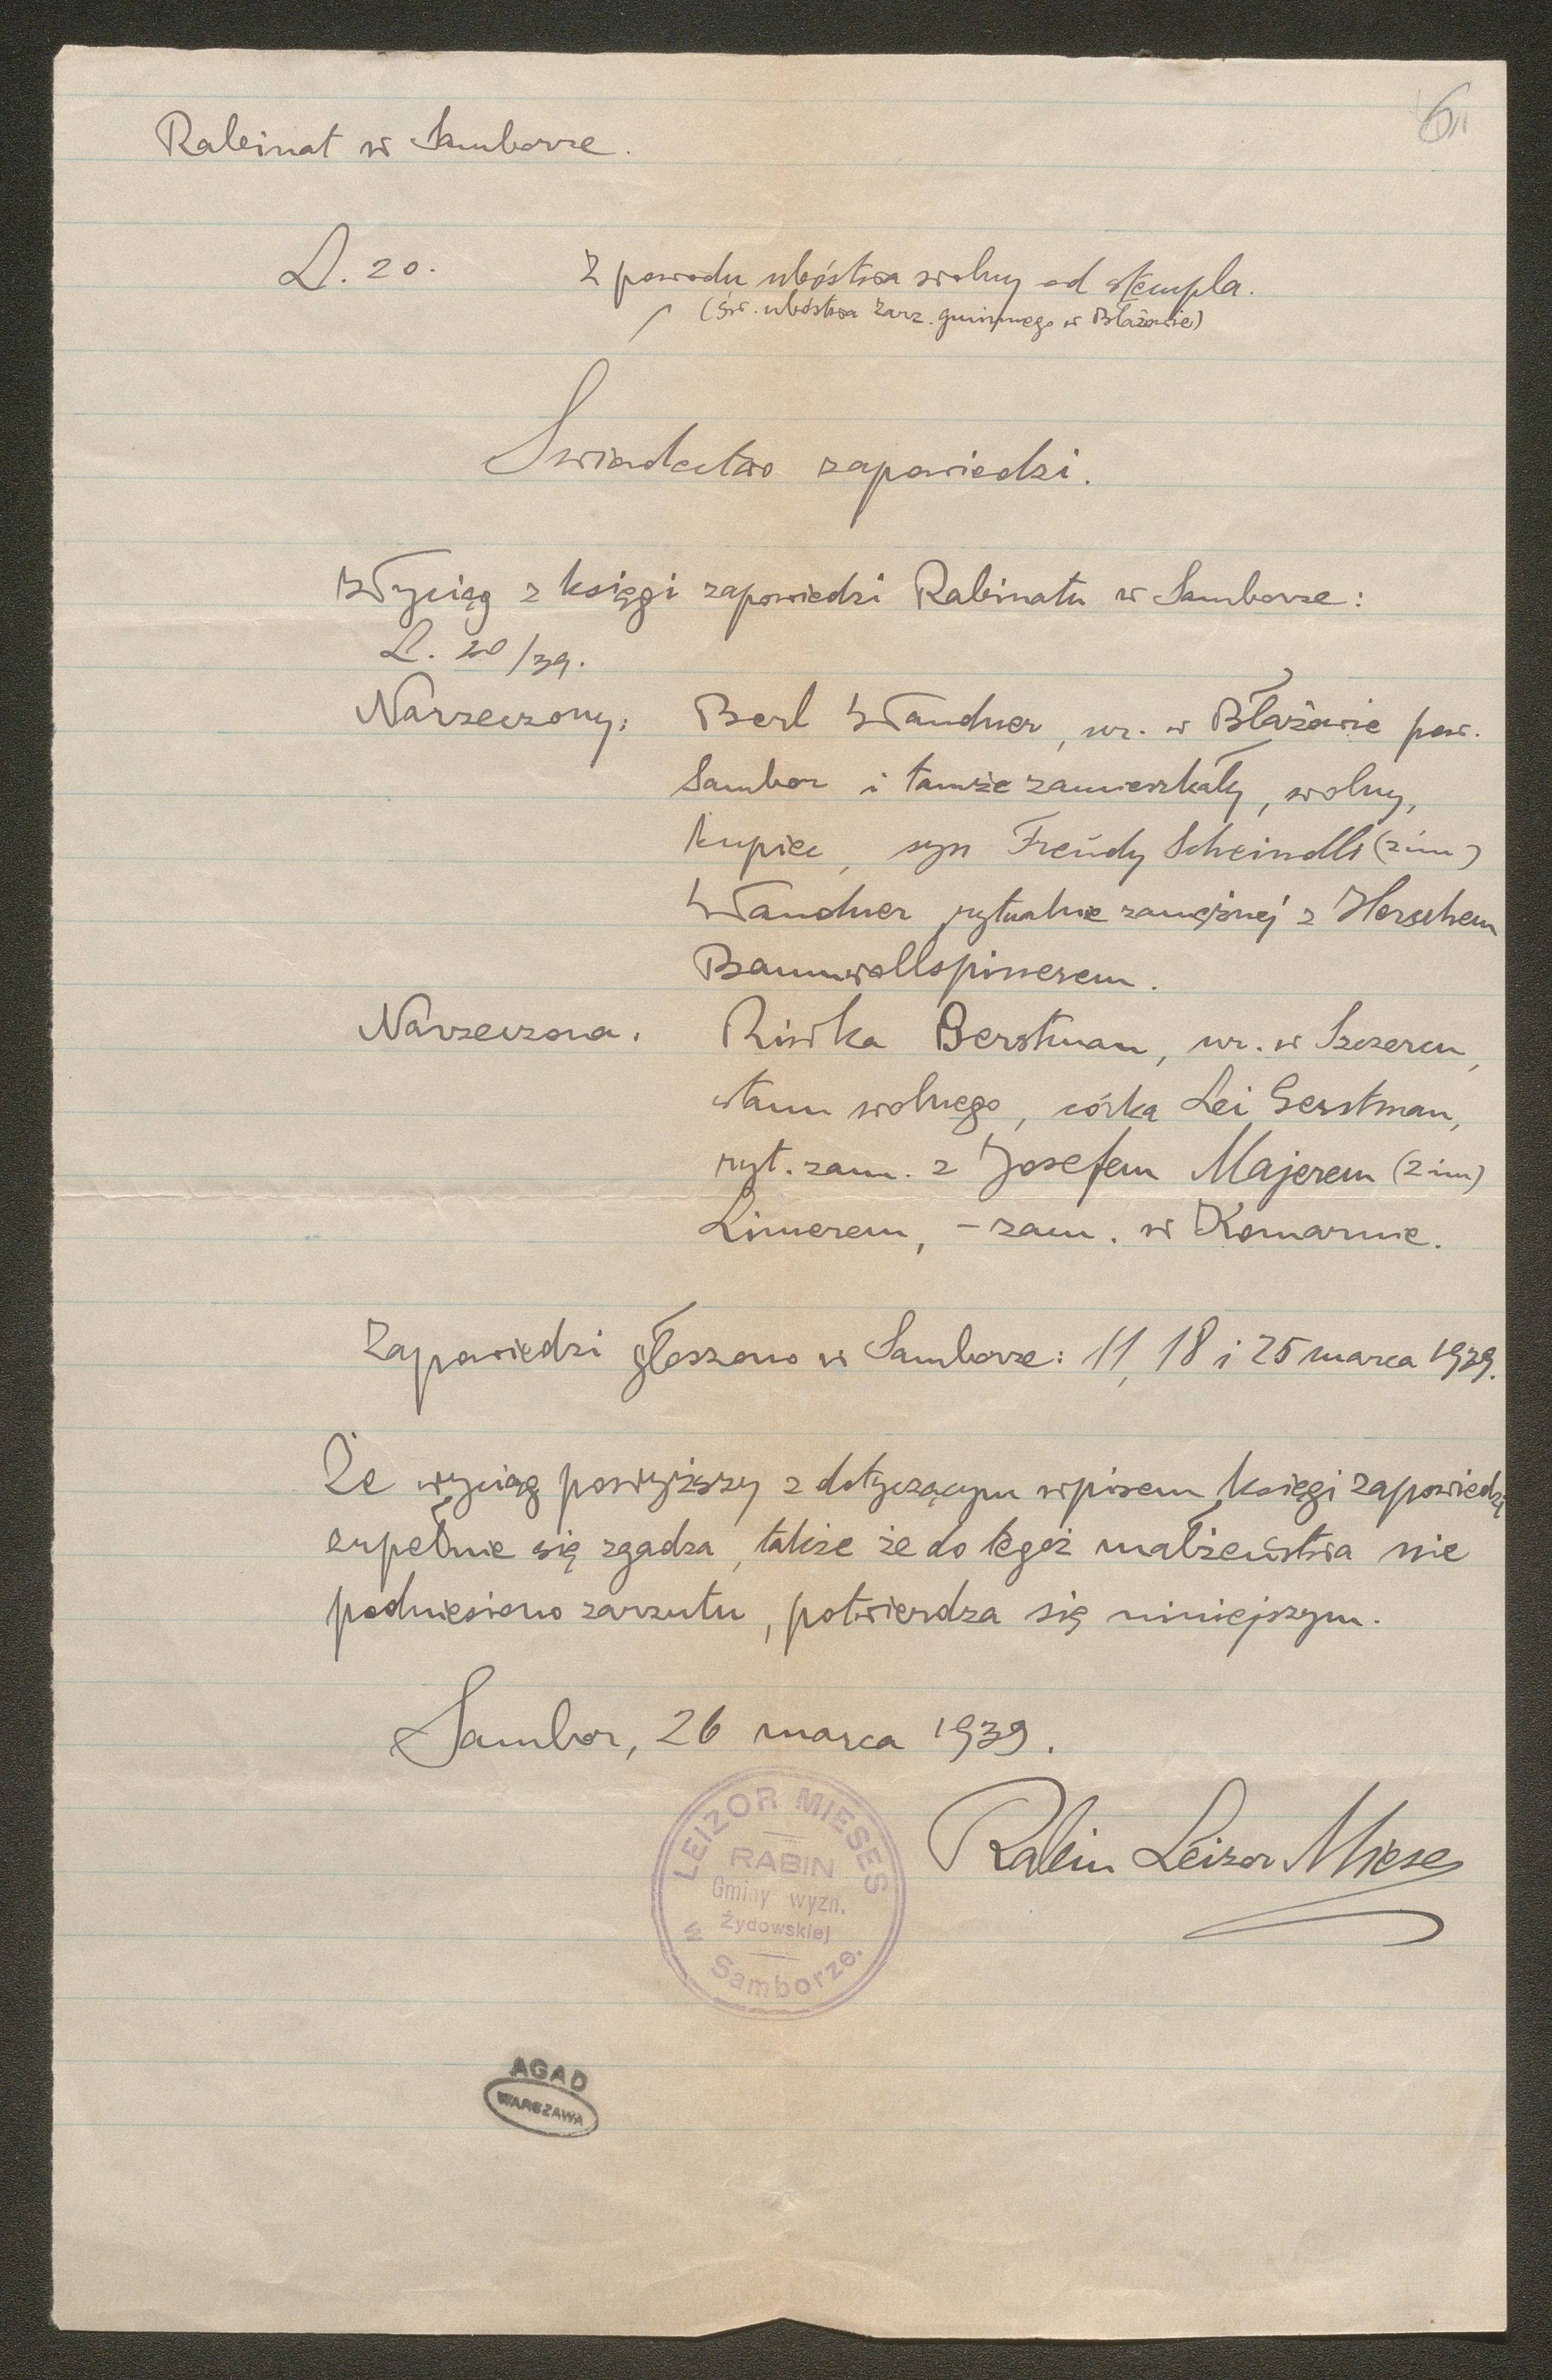 6
Rabinat w Samborze.
L. 20.
Z powodu ubóstwa wolny od stempla.
(św. ubóstwa Zarz. gminnego w Błażowie)
Swiadectwo zapowiedzi.
Wyciąg z księgi zapowiedzi Rabinatu w Samborze:
L. 20/39.
Narzeczony: Berl Wandner, ur. w Błażowie pow.
Sambor i tamże zamieszkały, wolny,
kupiec, syn Freudy Scheindli (2 im)
Wandner rytualnie zamężnej z Herschem
Baumwollspinnerem.
Narzeczona. Riwka Gerstman, ur. w Szczercu,
stanu wolnego, córka Lei Gerstman,
ryt. zam. z Josefem Majerem (2 im)
Limerem, - zam. w Komarnie.
Zapowiedzi głoszono w Samborze: 11, 18 i 25 marca 1939.
Że wyciąg powyższy z dotyczącym wpisem księgi zapowiedzi
zupełnie się zgadza, także że do tegoż małżeństwa nie
podniesiono zarzutu, potwierdza się niniejszym.
Sambor, 26 marca 1939.
Rabin Leizor Mieses
LEIZOR MIESES
RABIN
Gminy wyzn.
Żydowskiej
w Samborze.
AGAD
WARSZAWA